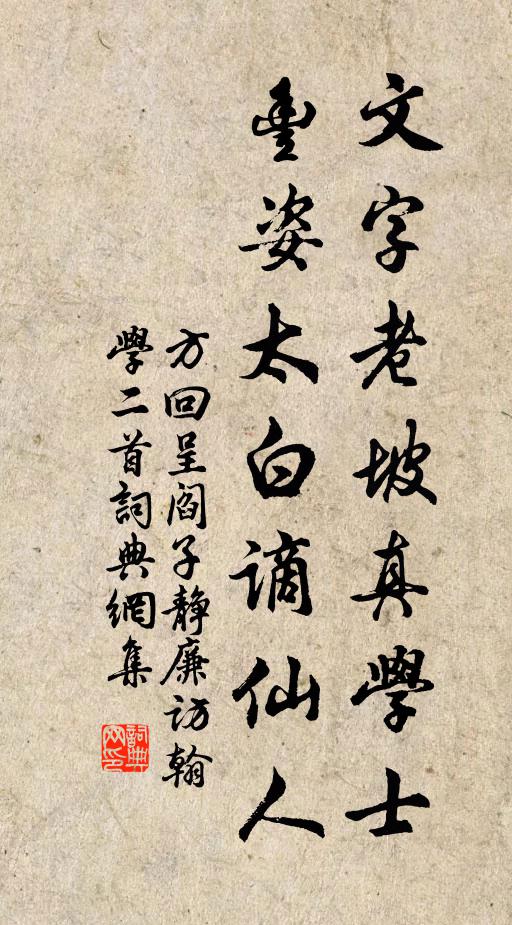 文字老坡真學士
豐姿太白謫仙人
方回呈閻子靜廉訪翰
學二首詞典網集
詞典
网印